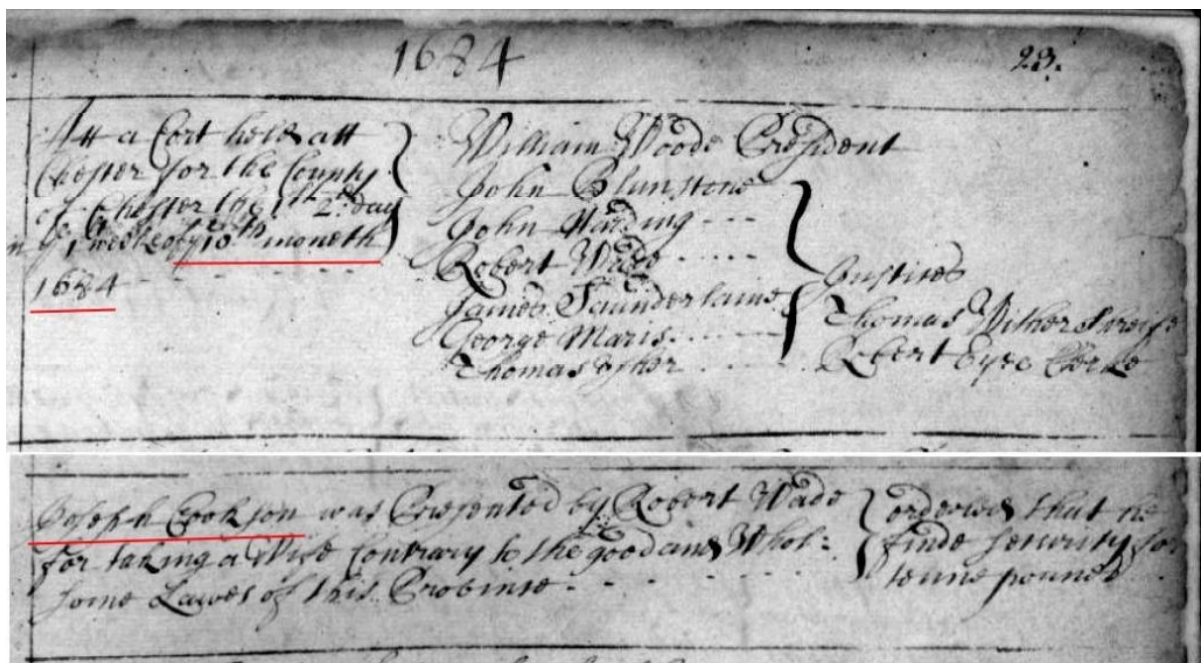 1684
23.
Att a Cort held att
Chester for the County
of Chester the 1st 2d day
in ye weeke of ye 10th moneth
1684
William Woode President
John Blunstone
John Harding
Robert Wade
James Saunderlaine
George Maris
Thomas
Justices
Thomas Wither
Robert Eyre Clerke
Joseph Cookson was Presented by Robert Wade
for taking a Wife Contrary to the good and Whol:
some Lawes of this Provinse
ordered that he
finde security for
tenne pounds